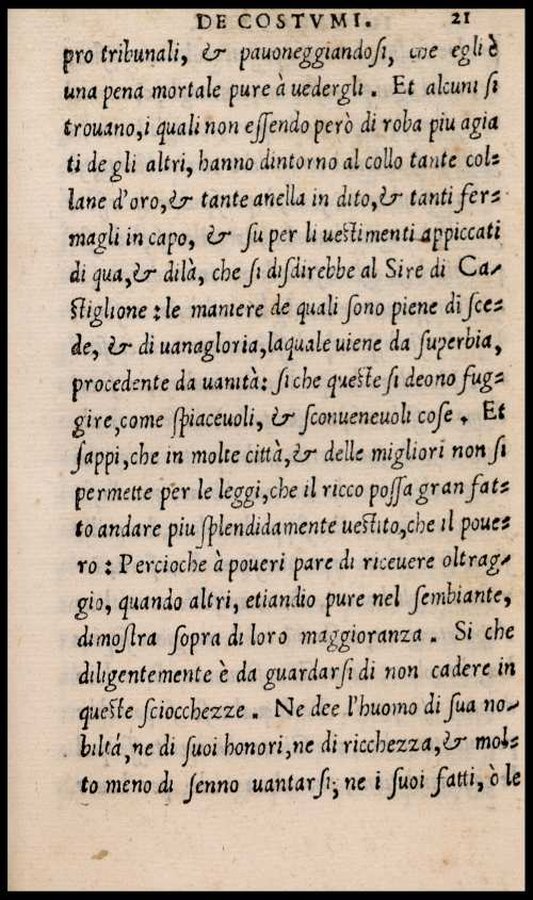 DE COSTVMI. 21
pro tribunali, & pauoneggiandosi, che egli è
una pena mortale pure à uedergli. Et alcuni si
trouano, i quali non essendo però di roba piu agia
ti de gli altri, hanno dintorno al collo tante col-
lane d'oro, & tante anella in dito, & tanti fer-
magli in capo, & su per li uestimenti appiccati
di qua, & dilà, che si disdirebbe al Sire di Ca-
stiglione: le maniere de quali sono piene di sce-
de, & di uanagloria, laquale uiene da superbia,
procedente da uanità: si che queste si deono fug-
gire, come spiaceuoli, & sconueneuoli cose. Et
sappi, che in molte città, & delle migliori non si
permette per le leggi, che il ricco possa gran fat-
to andare piu splendidamente uestito, che il poue-
ro: Percioche à poueri pare di riceuere oltrag-
gio, quando altri, etiandio pure nel sembiante,
dimostra sopra di loro maggioranza. Si che
diligentemente è da guardarsi di non cadere in
queste sciocchezze. Ne dee l'huomo di sua no-
biltá, ne di suoi honori, ne di ricchezza, & mol-
to meno di senno uantarsi; ne i suoi fatti, ò le